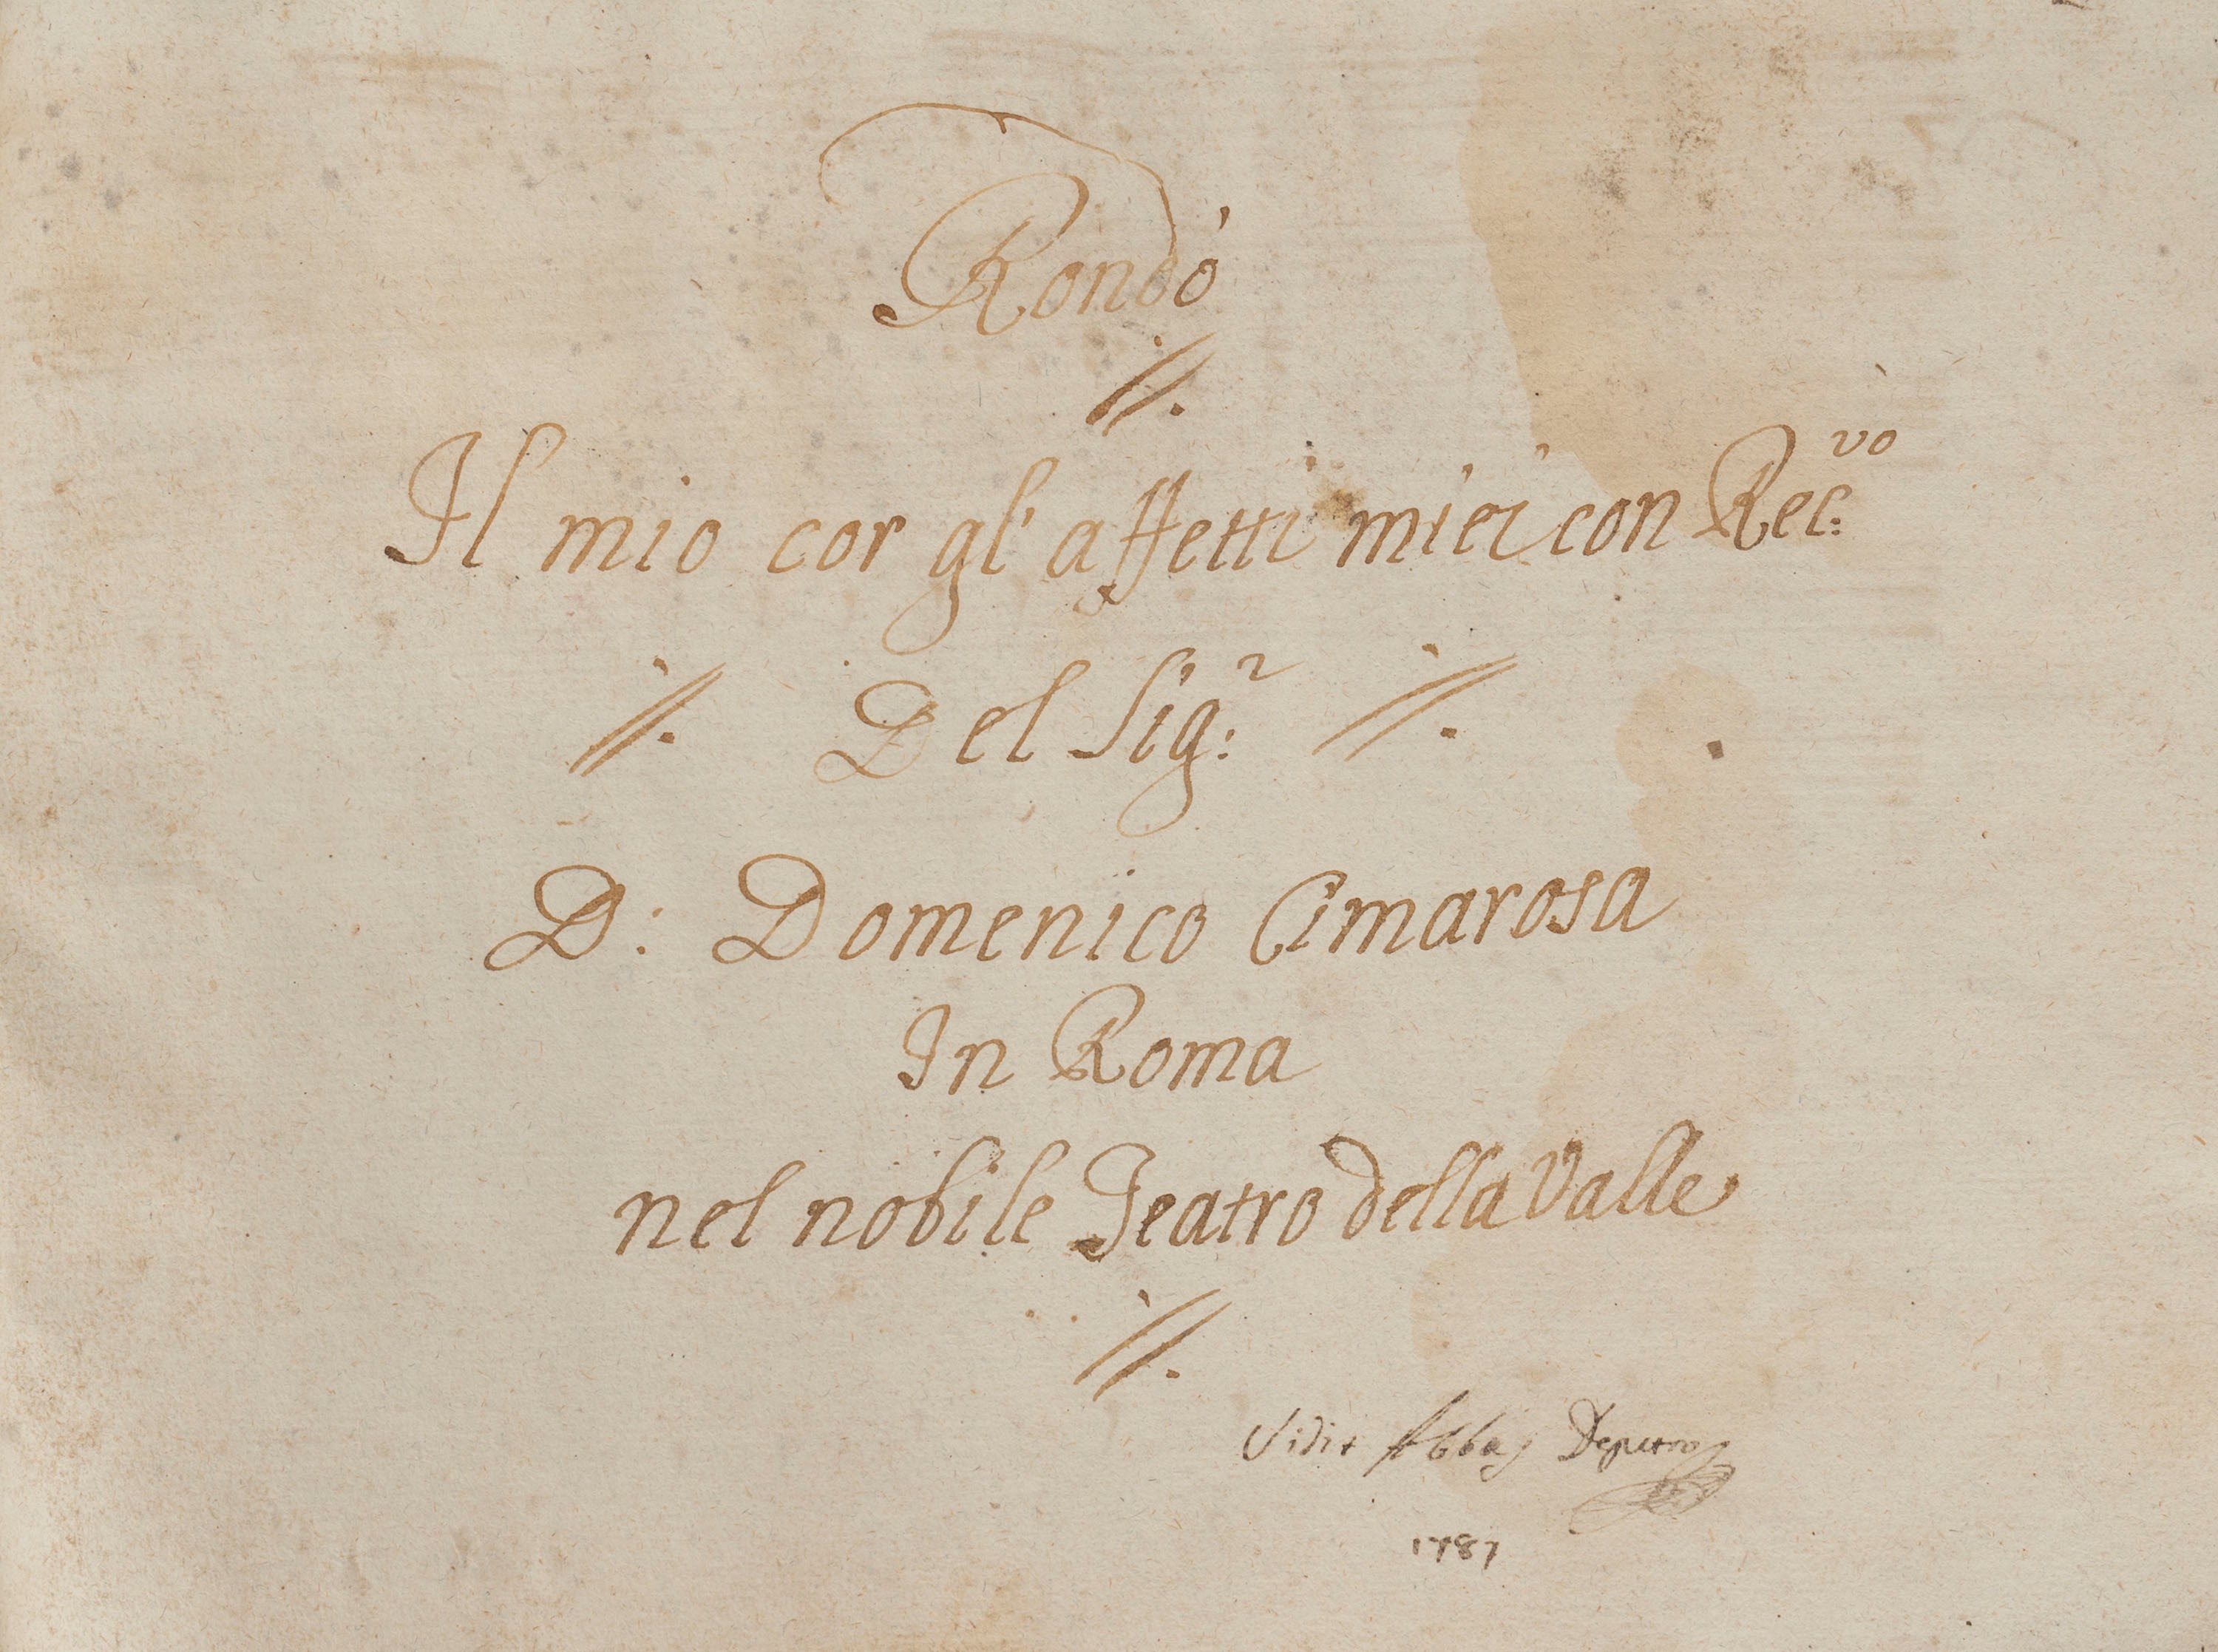 Rondò
Il mio cor gl'affetti miei con Rec:vo
Del Sig:r
D: Domenico Cimarosa
In Roma
nel nobile Teatro della Valle
Vidit Abbas
1787